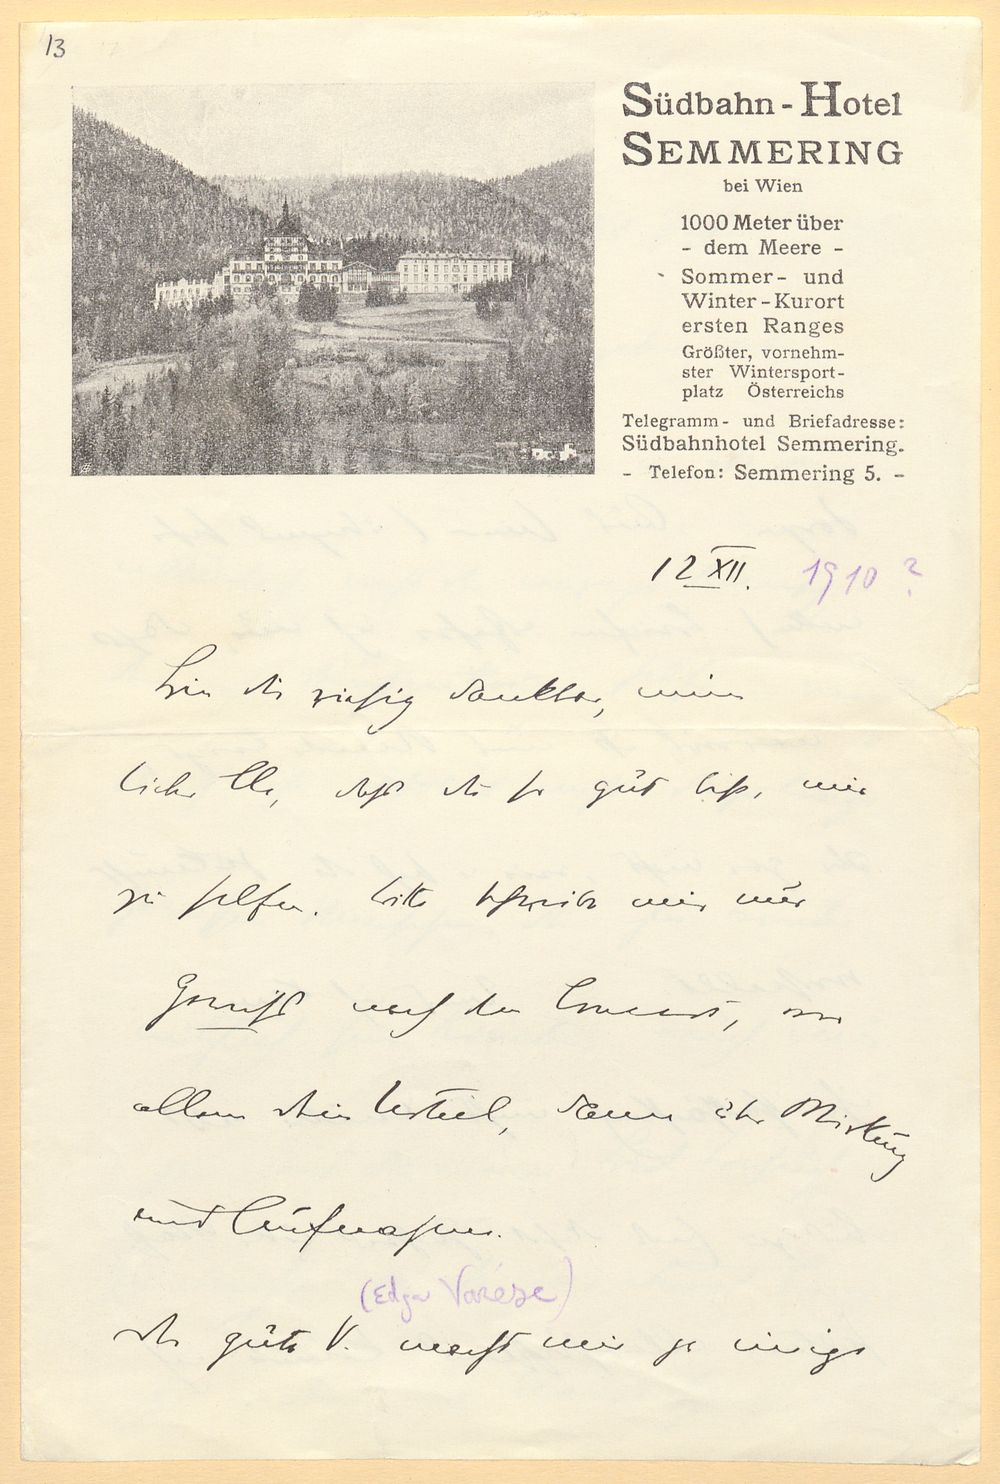 13
Südbahn-Hotel
SEMMERING
bei Wien
1000 Meter über
- dem Meere -
Sommer- und
Winter-Kurort
ersten Ranges
Größter, vornehm-
ster Wintersport-
platz Österreichs
Telegramm- und Briefadresse:
Südbahnhotel Semmering.
- Telefon: Semmering 5. -
12 XII. 1910?
Bin dir riesig dankbar, mein
lieber Cle, daß du so gut bist, mir
zu helfen. Bitte schreibe mir nur
gewiß nach dem Concert, vor
allem dein Urteil, dann über Wirkung
und Aufnahme.
(Edgar Varèse)
Der gute V. macht mir ja einige